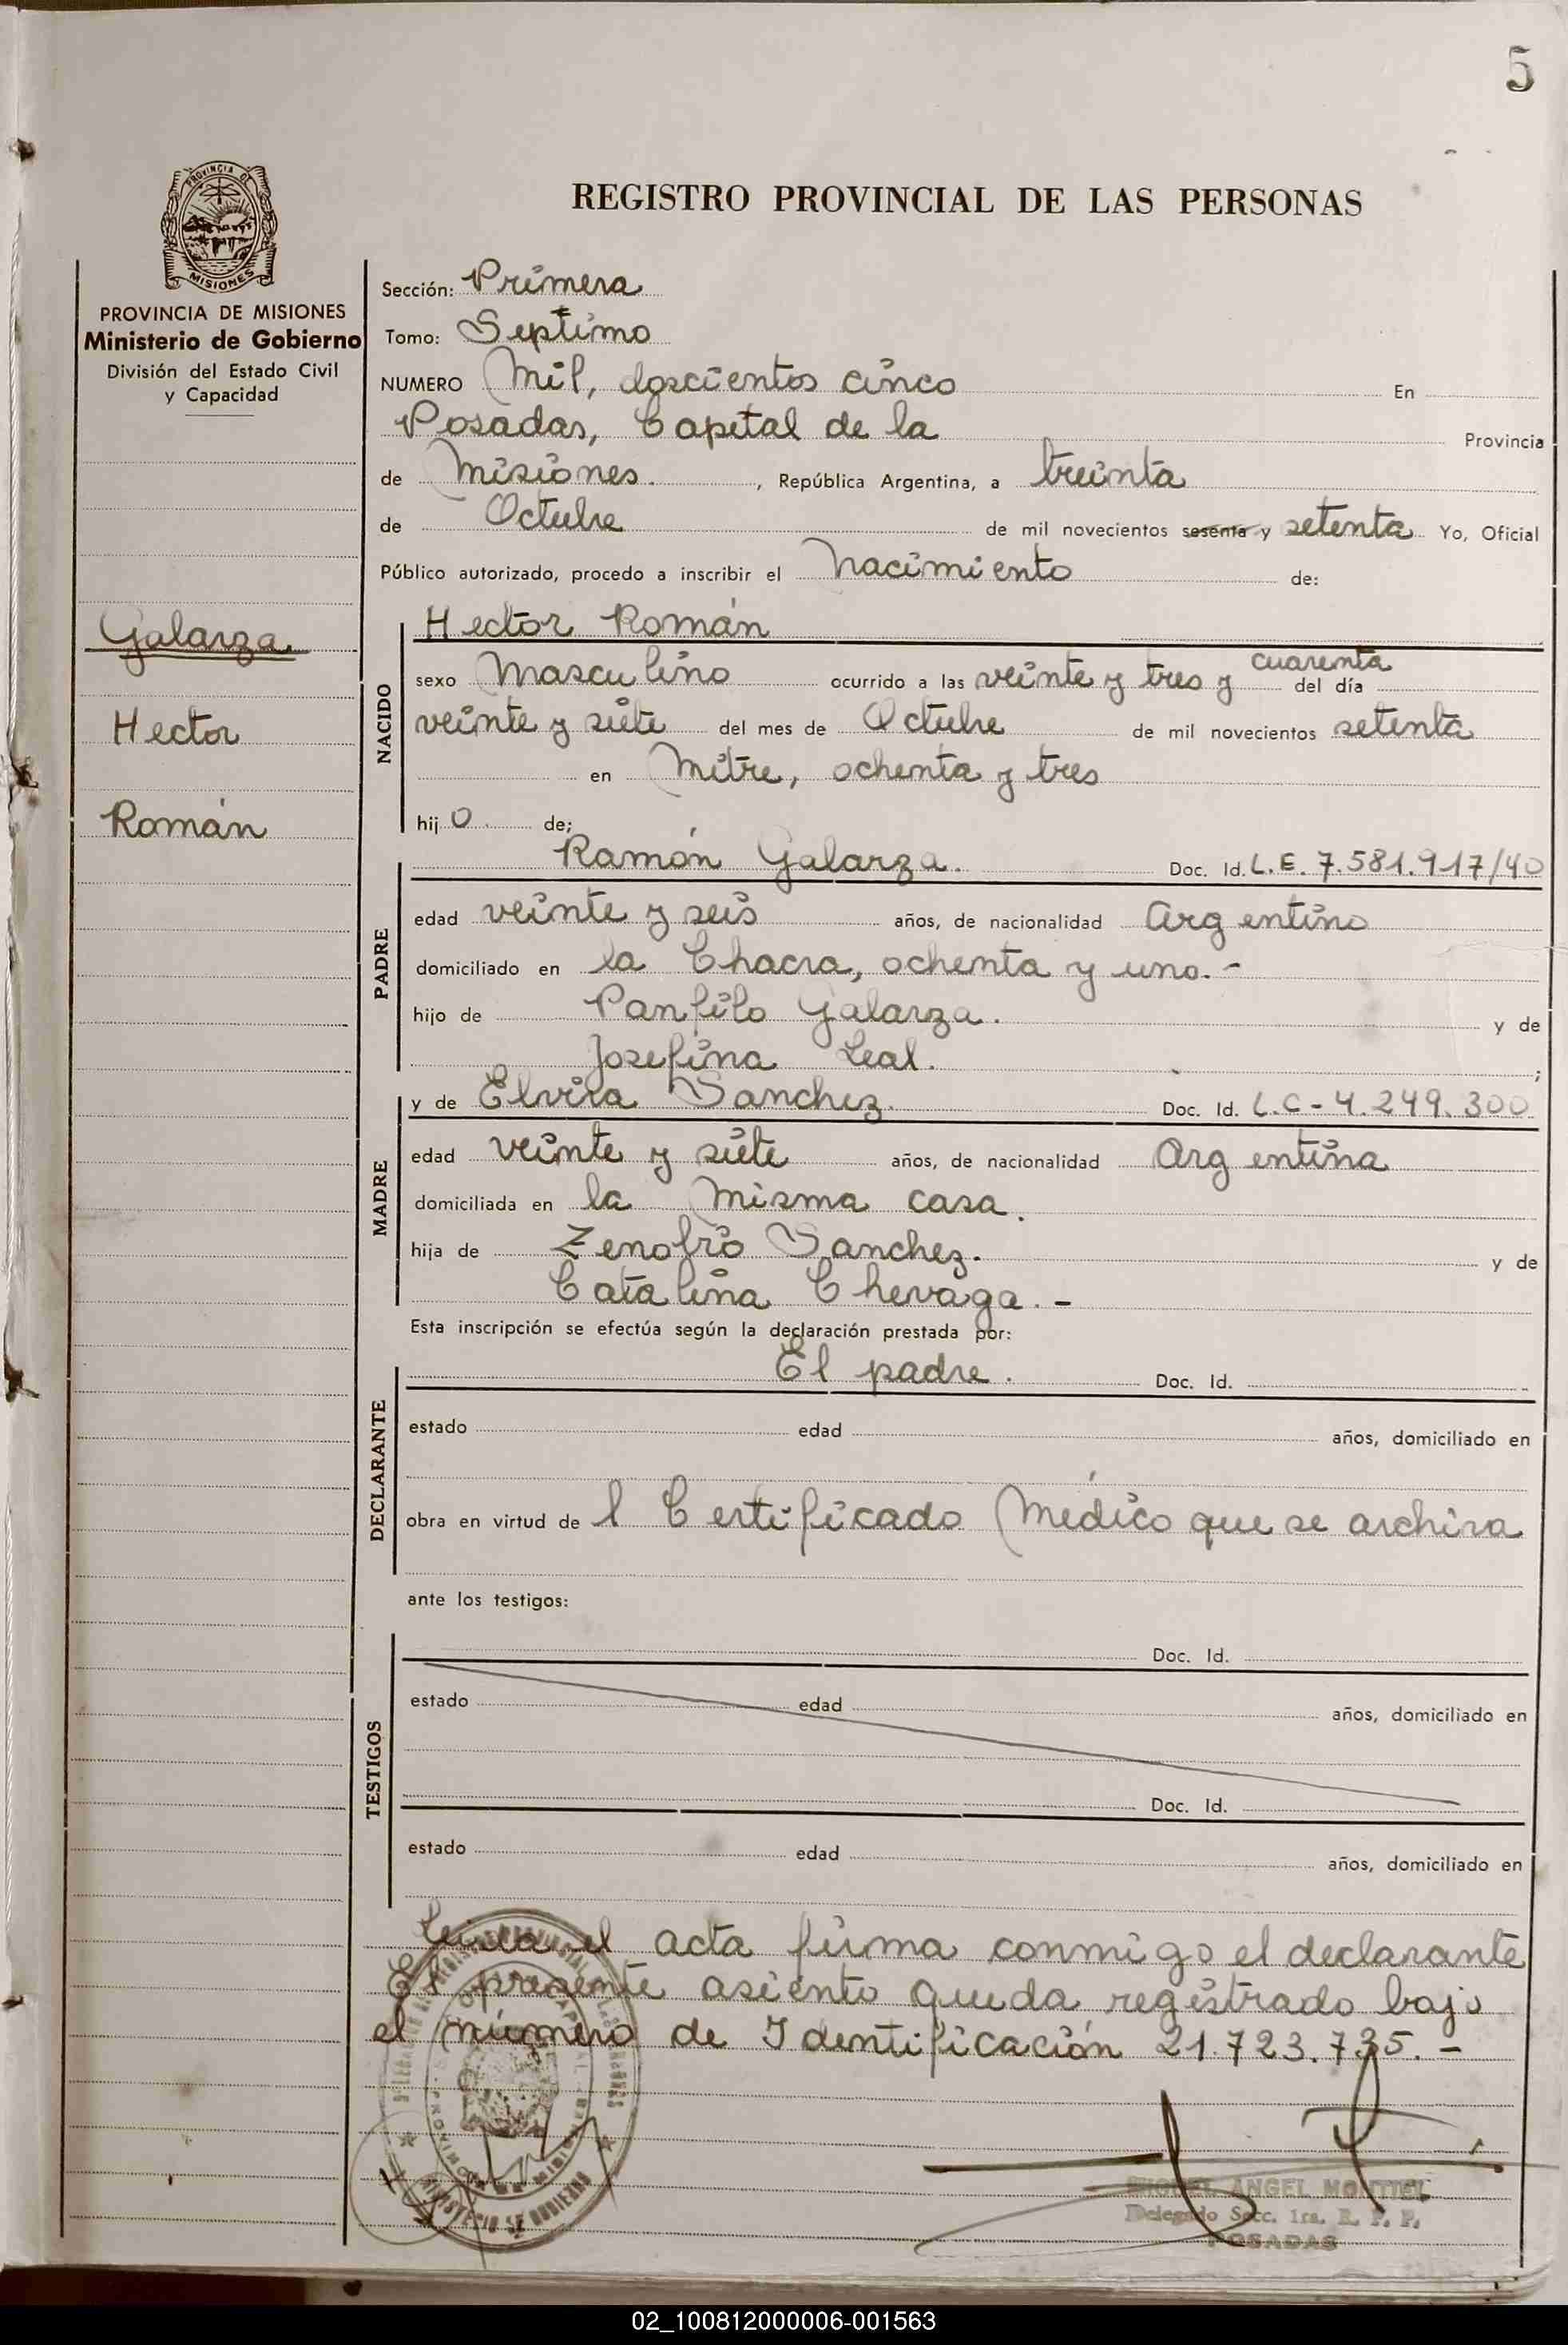 5
PROVINCIA DE
MISIONES
REGISTRO PROVINCIAL DE LAS PERSONAS
PROVINCIA DE MISIONES
Ministerio de Gobierno
División del Estado Civil
y Capacidad
Galarza.
Hector
Román
Sección: Primera
Tomo: Septimo
NUMERO Mil, doscientos cinco En
Posadas, Capital de la Provincia
de Misiones. , República Argentina, a treinta
de Octubre de mil novecientos sesenta y setenta Yo, Oficial
Público autorizado, procedo a inscribir el nacimiento de:
NACIDO
Hector Román
sexo Masculino ocurrido a las veinte y tres y cuarenta del día
veinte y siete del mes de Octubre de mil novecientos setenta
en Mitre, ochenta y tres
hijo. de;
PADRE
Ramón Galarza. Doc. Id. L.E. 7.581.917/40
edad veinte y seis años, de nacionalidad Argentino
domiciliado en la Chacra, ochenta y uno.-
hijo de Panfilo Galarza. y de
Josefina Leal. ;
MADRE
y de Elvira Sanchez. Doc. Id. L.C-4.249.300
edad veinte y siete años, de nacionalidad Argentina
domiciliada en la misma casa.
hija de Zenofio Sanchez. y de
Catalina Chevaga.-
Esta inscripción se efectúa según la declaración prestada por:
DECLARANTE
El padre. Doc. Id.
estado edad años, domiciliado en
obra en virtud de l Certificado Médico que se archiva
ante los testigos:
TESTIGOS
Doc. Id.
estado edad años, domiciliado en
Doc. Id.
estado edad años, domiciliado en
Leida el acta firma conmigo el declarante
El presente asiento queda registrado bajo
el número de Identificación 21.723.735.-
MINISTERIO DE GOBIERNO
MIGUEL ANGEL MONTIEL
Delegado Secc. 1ra. R. P. P.
POSADAS
02_100812000006-001563